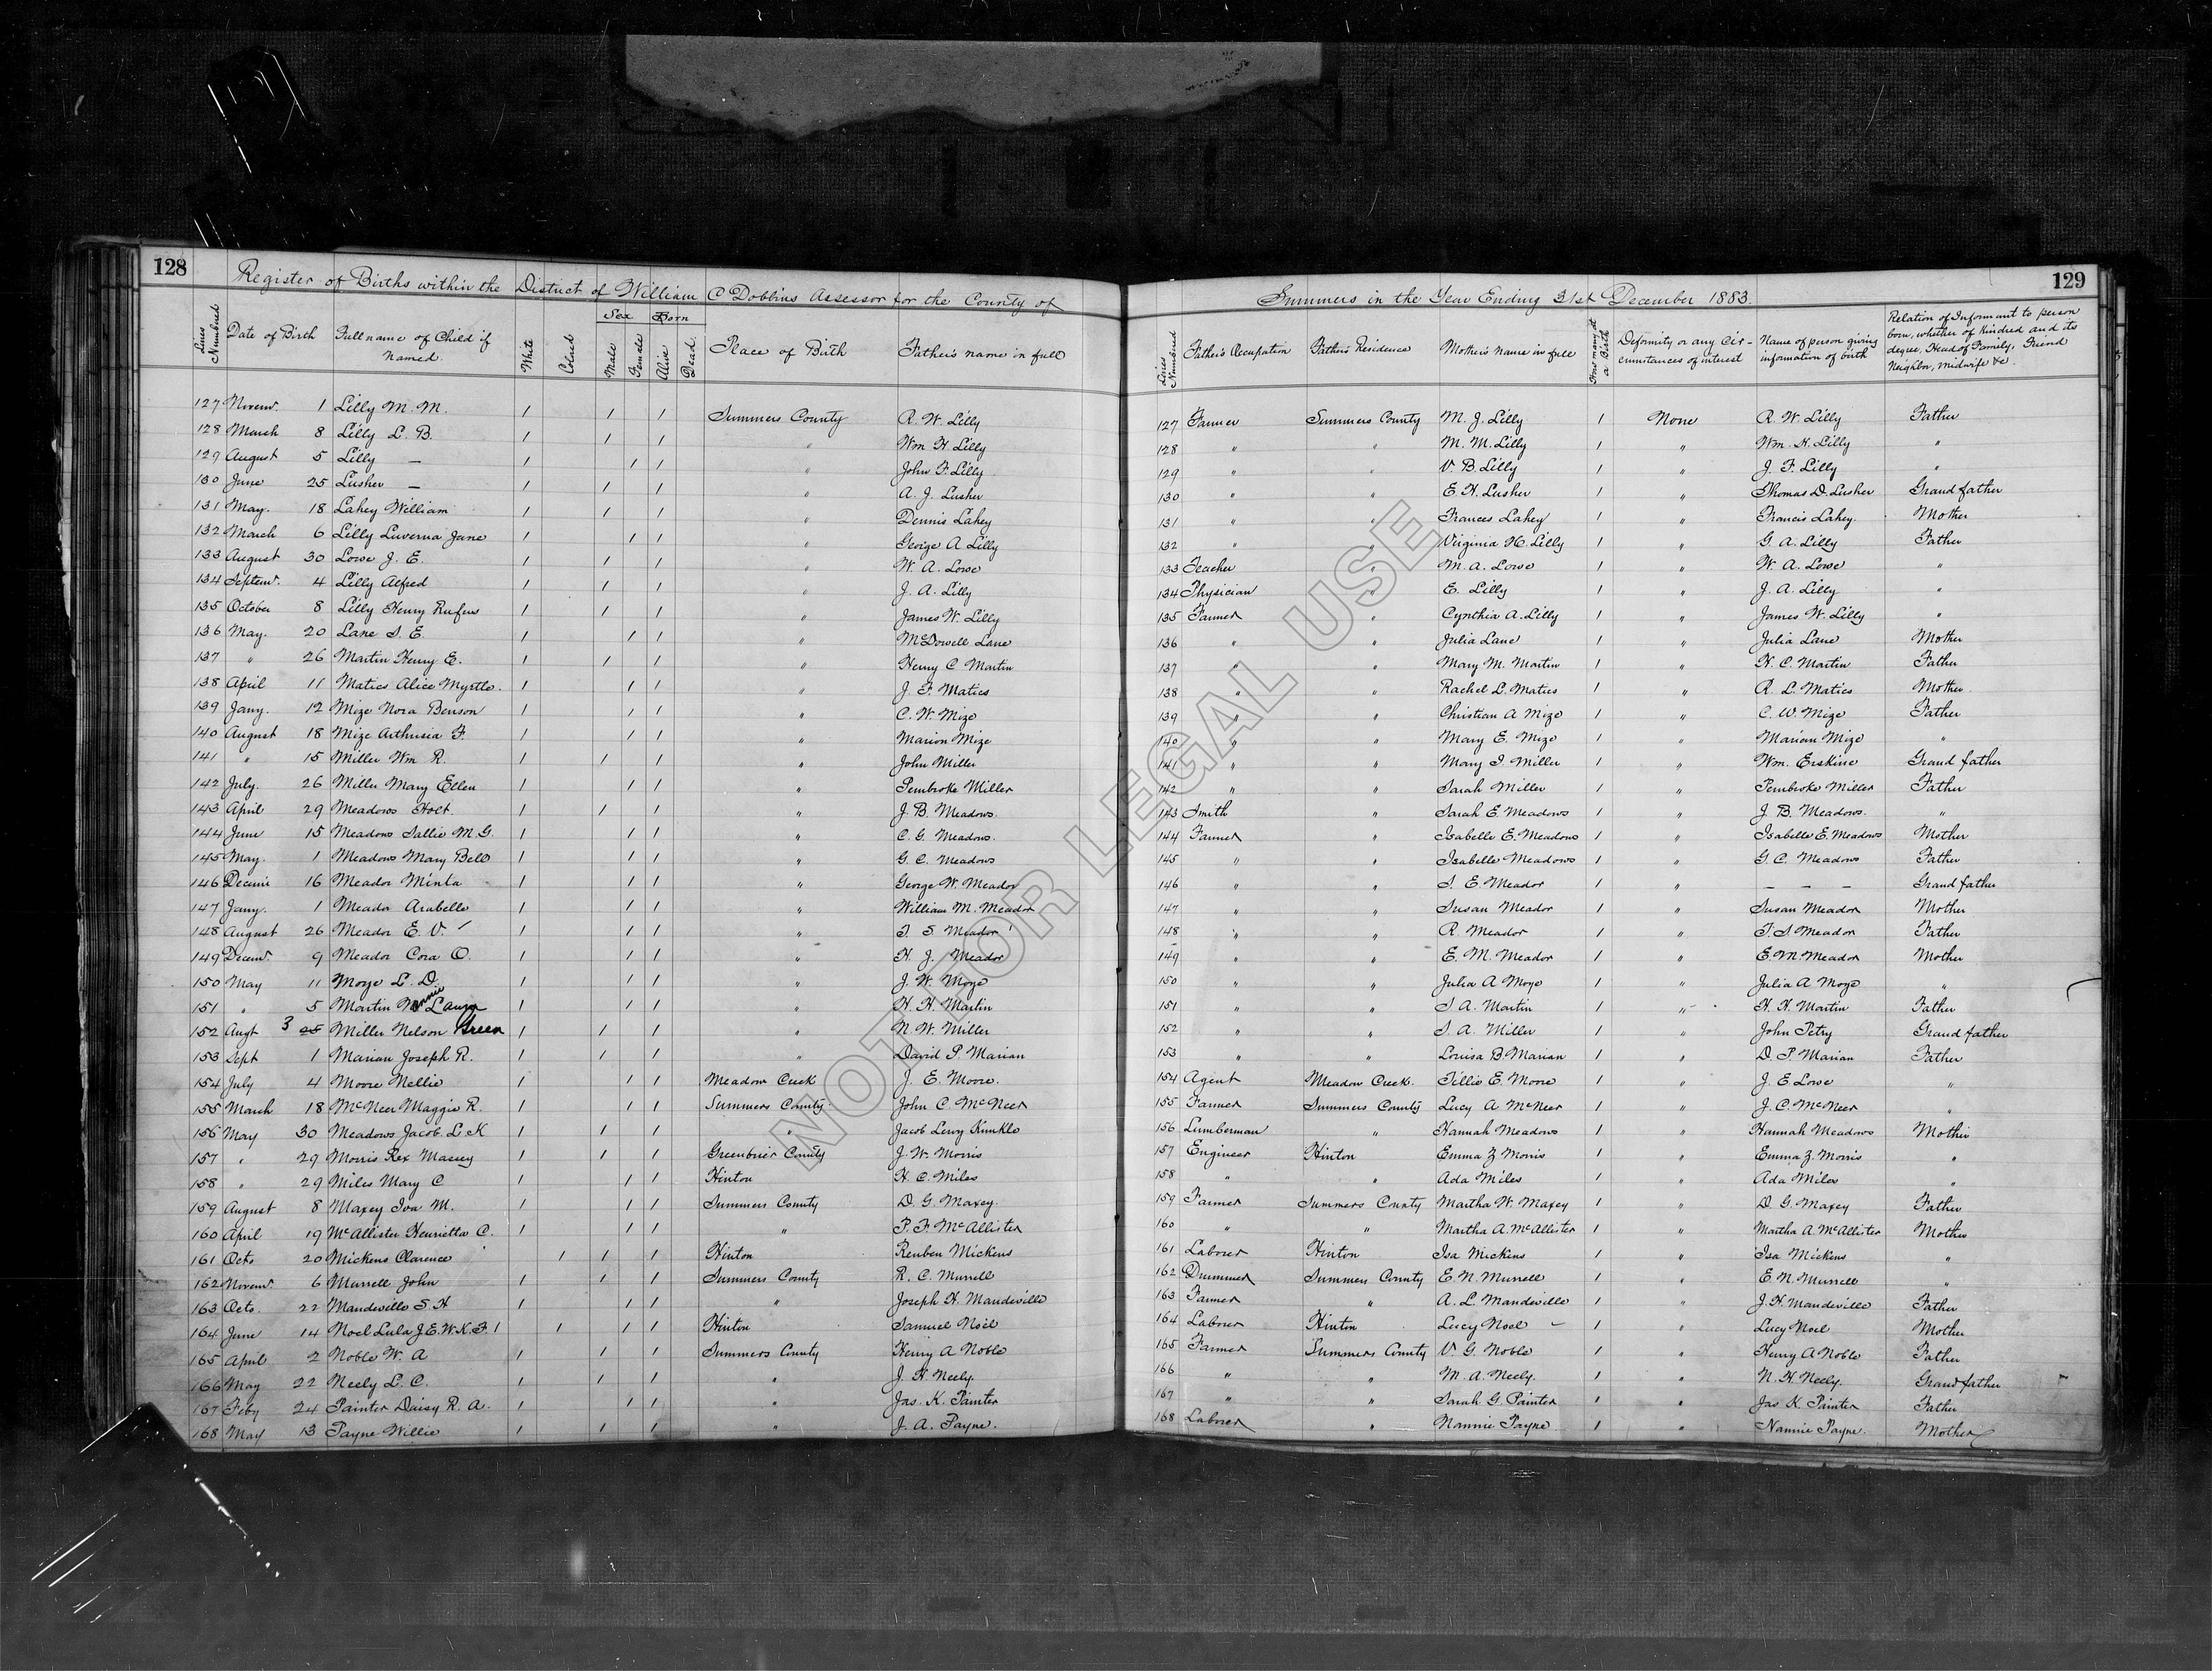 128
Register of Births within the District of William C Dobbins Assessor for the County of
Lines Numbered Date of Birth Full name of Child if Named. White Colord Sex Male Female Born Alive Dead. Place of Birth Father's name in full
127 Novem. 1 Lilly M. M. 1 1 1 Summers County R. W. Lilly
128 March 8 Lilly L. B. 1 1 1 " Wm H Lilly
129 August 5 Lilly — 1 1 1 " John F. Lilly
130 June 25 Lusher — 1 1 1 " A. J. Lusher
131 May. 18 Lahey William 1 1 1 " Dennis Lahey
132 March 6 Lilly Luverna Jane 1 1 1 " George A Lilly
133 August 30 Lowe J. E. 1 1 1 " W. A. Lowe
134 Septem. 4 Lilly Alfred 1 1 1 " J. A. Lilly
135 October 8 Lilly Henry Rufus 1 1 1 " James W. Lilly
136 May. 20 Lane S. E. 1 1 1 " McDowell Lane
137 " 26 Martin Henry E. 1 1 1 " Henry C Martin
138 April 11 Matics Alice Myrtle. 1 1 1 " J. F. Matics
139 Jany. 12 Mize Nora Benson 1 1 1 " C. W. Mize
140 August 18 Mize Arthusia F. 1 1 1 " Marion Mize
141 " 15 Miller Wm R. 1 1 1 " John Miller
142 July. 26 Miller Mary Ellen 1 1 1 " Pembroke Miller
143 April 29 Meadows Holt. 1 1 1 " J. B. Meadows.
144 June 15 Meadows Sallie M. G. 1 1 1 " C. G. Meadows.
145 May. 1 Meadows Mary Bell 1 1 1 " G. C. Meadows
146 16 Meador Minta 1 1 1 " George W. Meador
147 Jany. 1 Meador Arabelle 1 1 1 " William M. Meador
148 August 26 Meador E. V. 1 1 1 " S. S. Meador
149 Decem. 9 Meador Cora O. 1 1 1 " H. J. Meador
150 May 11 Moye L. D. 1 1 1 " J. W. Moye
151 " 5 Martin Laura 1 1 1 " H. H. Martin
152 Augt 3 25 Miller Nelson Green 1 1 1 " N. W. Miller
153 Sept 1 Marian Joseph R. 1 1 1 " David P. Marian
154 July 4 Moore Nellie 1 1 1 Meadow Creek J. E. Moore.
155 March 18 McNeer Maggie R. 1 1 1 Summers County. John C. McNeer
156 May 30 Meadows Jacob L K 1 1 1 " Jacob Leroy Kunkle
157 " 29 Morris Rex Massey 1 1 1 Greenbrier County J. W. Morris
158 " 29 Miles Mary C 1 1 1 Hinton H. C. Miles
159 August 8 Maxey Iva M. 1 1 1 Summers County D. G. Maxey.
160 April 19 McAllister Henrietta C. 1 1 1 " P. F. McAllister
161 Octo 20 Mickens Clarence 1 1 1 Hinton Reuben Mickens
162 Novem. 6 Murrell John 1 1 1 Summers County R. C. Murrell
163 Octo. 22 Mandeville S. H 1 1 1 " Joseph H. Mandeville
164 June 14 Noel Lula J. E. W. K. F. 1 1 1 1 Hinton Samuel Noel
165 April 2 Noble W. A 1 1 1 Summers County Henry A Noble
166 May 22 Neely L. C. 1 1 1 " J. H. Neely.
167 Feby 24 Painter Daisy R. A. 1 1 1 " Jas. K. Painter
168 May 13 Payne Willie 1 1 1 " J. A. Payne.
129
Summers in the Year Ending 31st December 1883.
Lines Numbered Father's Occupation Father's Residence Mother's Name in full How many at a Birth Deformity or any Circumstances of interest Name of person giving information of birth Relation of Informant to person born, whether of Kindred and its degree, Head of Family, Friend Neighbor, midwife &c.
127 Farmer Summers County M. J. Lilly 1 None R. W. Lilly Father
128 " " M. M. Lilly 1 " Wm. H. Lilly "
129 " " V. B. Lilly 1 " J. F. Lilly "
130 " " E. H. Lusher 1 " Thomas D. Lusher Grand father
131 " " Frances Lahey 1 " Francis Lahey. Mother
132 " " Virginia H. Lilly 1 " G. A. Lilly Father
133 Teacher " M. A. Lowe 1 " W. A. Lowe "
134 Physician " E. Lilly 1 " J. A. Lilly "
135 Farmer " Cynthia A. Lilly 1 " James W. Lilly "
136 " " Julia Lane 1 " Julia Lane Mother
137 " " Mary M. Martin 1 " H. C. Martin Father
138 " " Rachel L. Matics 1 " R. L. Matics Mother.
139 " " Christian A Mize 1 " C. W. Mize Father
140 " " Mary E. Mize 1 " Marian Mize "
141 " " Mary I. Miller 1 " Wm. Erskine Grand father
142 " " Sarah Miller 1 " Pembroke Miller Father
143 Smith " Sarah E. Meadows 1 " J. B. Meadows. "
144 Farmer " Isabelle E. Meadows 1 " Isabelle E. Meadows Mother
145 " " Isabelle Meadows 1 " G. C. Meadows Father
146 " " S. E. Meador 1 " — — — Grand father
147 " " Susan Meador 1 " Susan Meador Mother
148 " " R. Meador 1 " S. S Meador Father
149 " " E. M. Meador 1 " E. M. Meador Mother
150 " " Julia A Moye 1 " Julia A Moye "
151 " " S A. Martin 1 " H. H. Martin Father
152 " " S. A. Miller 1 " John Petry Grand father
153 " " Louisa B Marian 1 " D. P. Marian Father
154 Agent Meadow Creek. Tillie E. Moore 1 " J. E Lowe "
155 Farmer Summers County Lucy A McNeer 1 " J. C. McNeer "
156 Lumberman " Hannah Meadows 1 " Hannah Meadows Mother
157 Engineer Hinton Emma Z Morris 1 " Emma Z. Morris "
158 " " Ada Miles 1 " Ada Miles "
159 Farmer Summers County Martha W. Maxey 1 " D. G. Maxey Father
160 " " Martha A. McAllister 1 " Martha A. McAllister Mother
161 Laborer Hinton Isa Mickens 1 " Isa Mickens "
162 Drummer Summers County E. N. Murrell 1 " E. N. Murrell "
163 Farmer " A. L. Mandeville 1 " J. H. Mandeville Father
164 Laborer Hinton Lucy Noel 1 " Lucy Noel Mother
165 Farmer Summers County V. G. Noble 1 " Henry A Noble Father
166 " " M. A. Neely. 1 " N. H. Neely. Grandfather
167 " " Sarah G. Painter 1 " Jas K. Painter Father
168 Laborer " Nannie Payne 1 " Nannie Payne. Mother
NOT FOR LEGAL USE